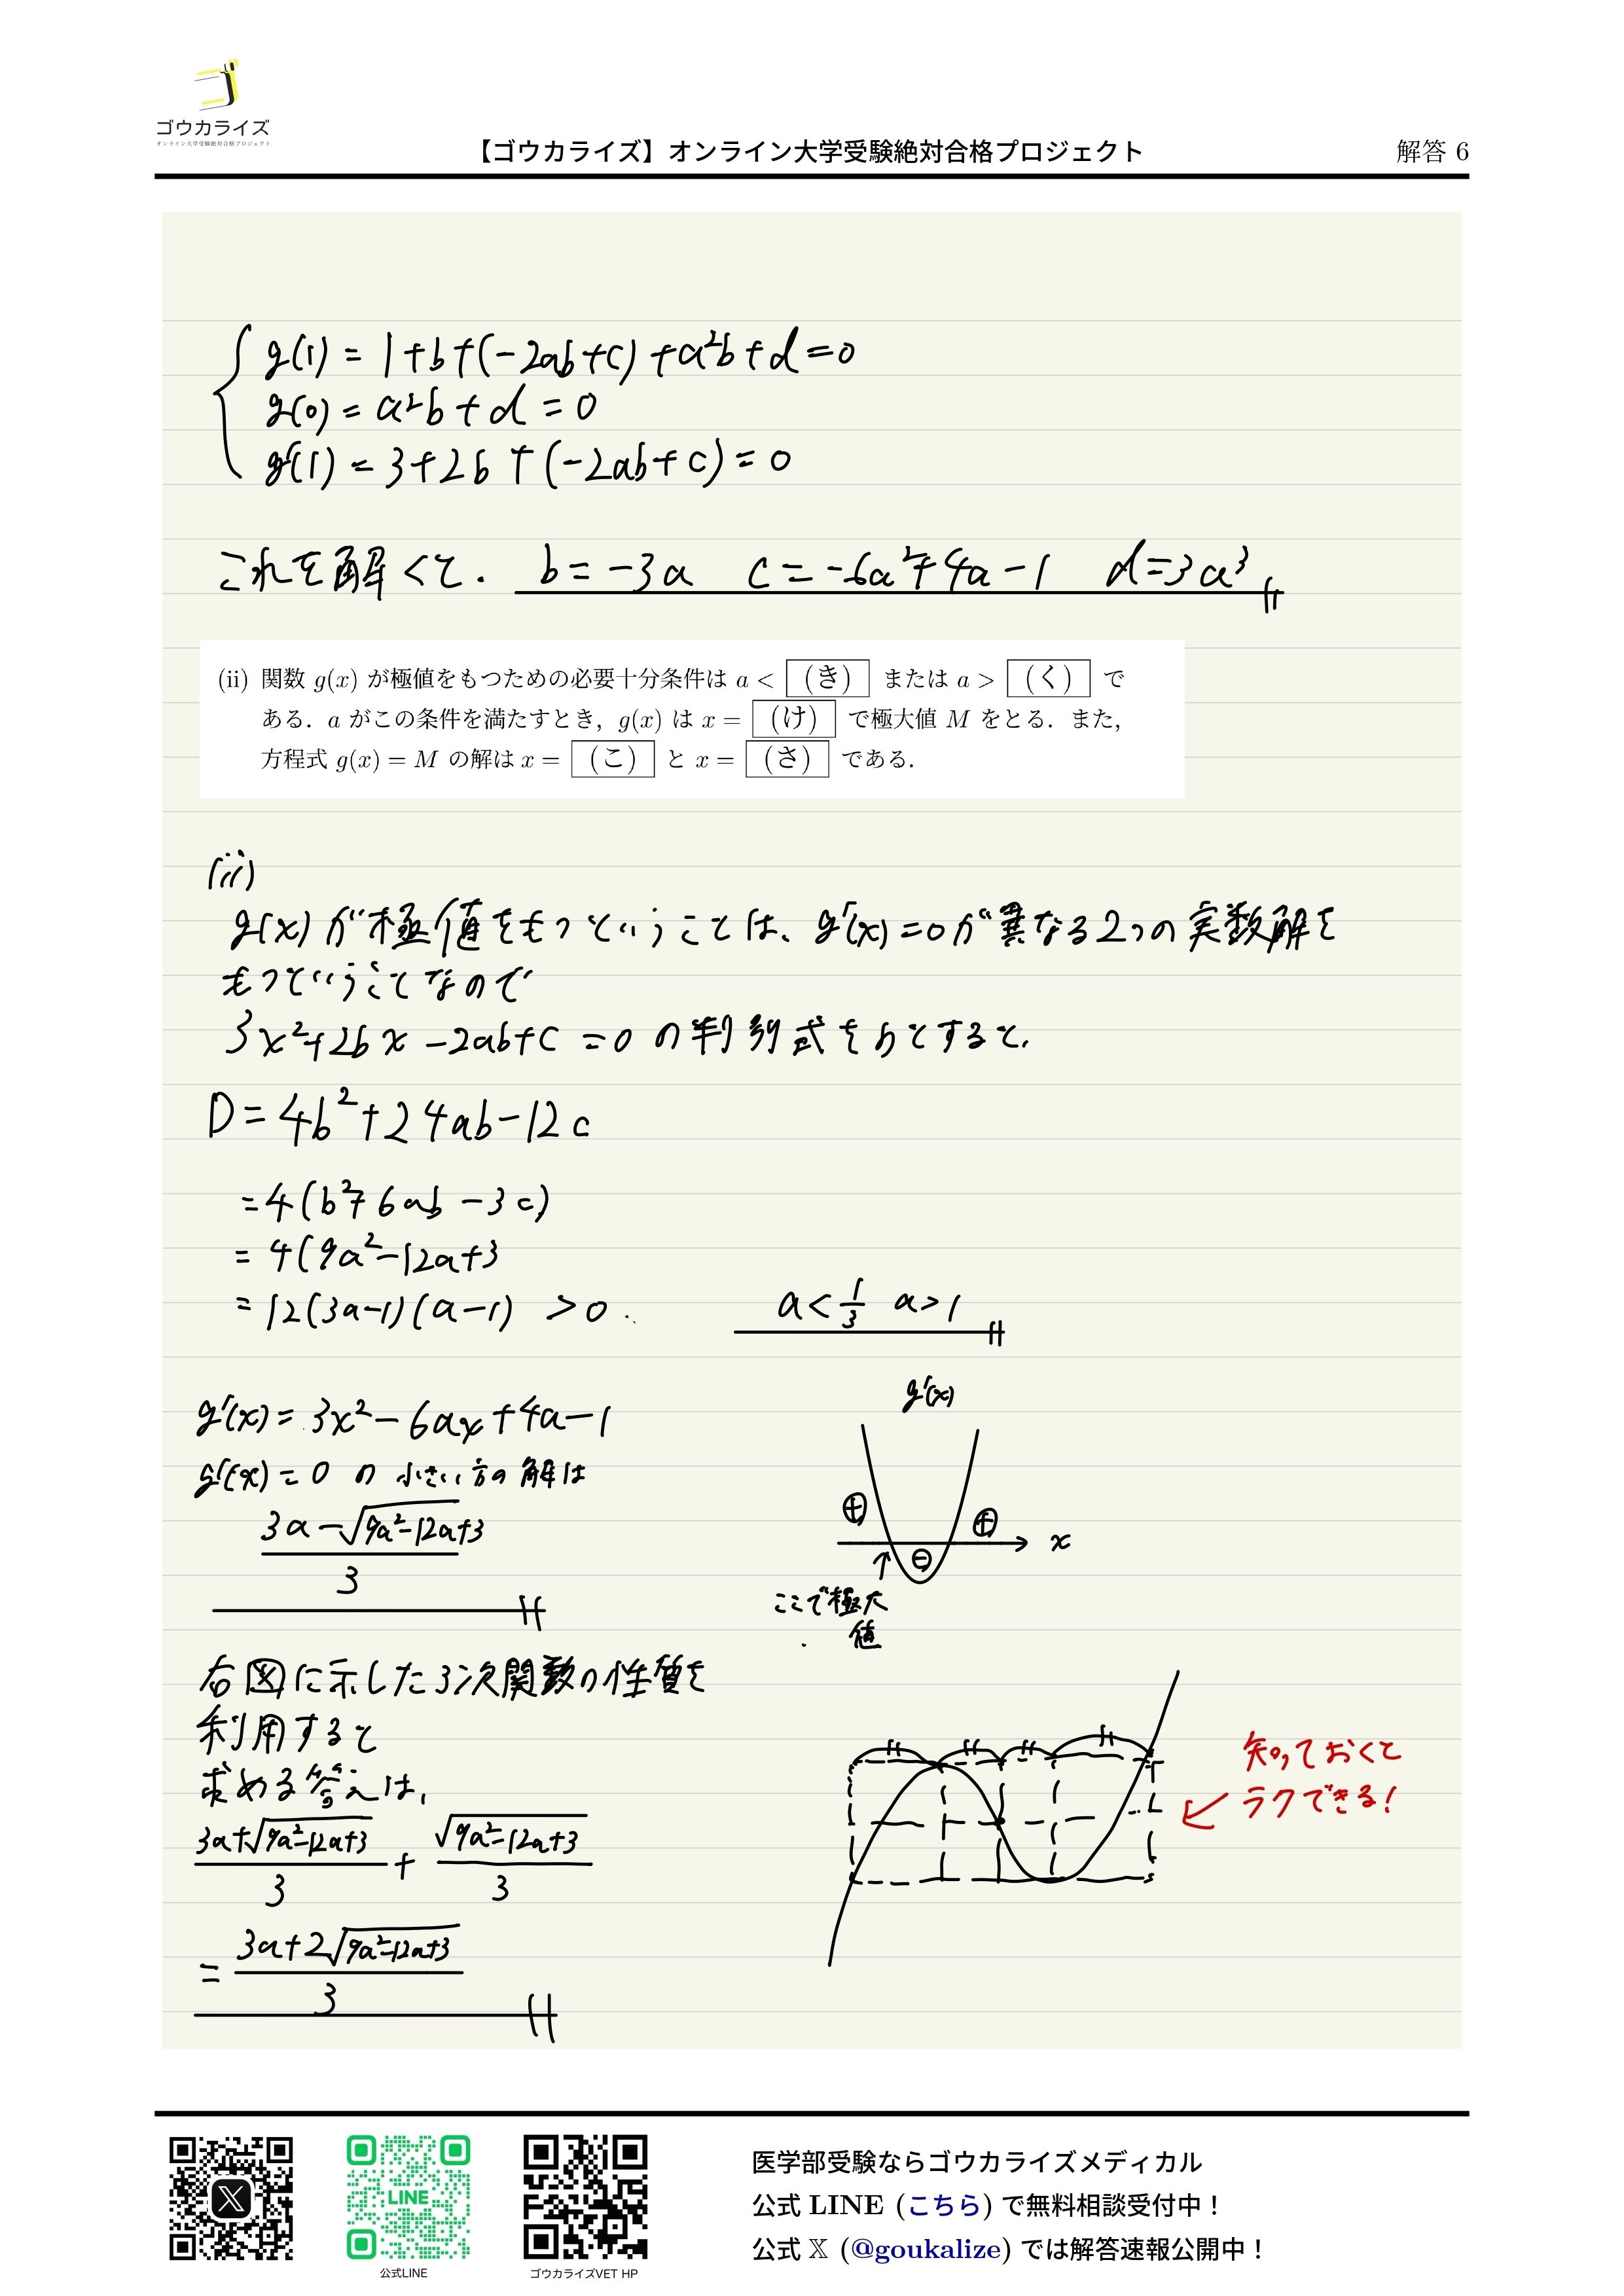 ゴウカライズ
オンライン大学受験絶対合格プロジェクト
【ゴウカライズ】オンライン大学受験絶対合格プロジェクト
解答 6
g(1) = 1+b+(-2ab+c)+a²b+d=0
g(0) = a²b+d=0
g'(1) = 3+2b+(-2ab+c)=0
これを解くて. b=-3a c=-6a²+4a-1 d=3a³
(ii) 関数 g(x) が極値をもつための必要十分条件は a < (き) または a > (く) で
ある．a がこの条件を満たすとき，g(x) は x = (け) で極大値 M をとる．また，
方程式 g(x) = M の解は x = (こ) と x = (さ) である．
(ii)
g(x)が極値をもつということは、g'(x)=0が異なる2つの実数解を
もつということなので
3x²+2bx-2ab+c=0の判別式をDとすると、
D=4b²+24ab-12c
=4(b²+6ab-3c)
=4(9a²-12a+3
=12(3a-1)(a-1) >0.
a<1/3 a>1
g'(x)=3x²-6ax+4a-1
g'(x)=0 の 小さい方の解は
(3a-√(9a²-12a+3))/3
g'(x)
⊕ ⊕
⊖
x
ここで極大
値
右図に示した3次関数の性質を
利用すると
求める答えは、
(3a+√(9a²-12a+3))/3 + √(9a²-12a+3)/3
= (3a+2√(9a²-12a+3))/3
知っておくと
ラクできる!
LINE
公式LINE
ゴウカライズVET HP
医学部受験ならゴウカライズメディカル
公式 LINE (こちら) で無料相談受付中！
公式 𝕏 (@goukalize) では解答速報公開中！